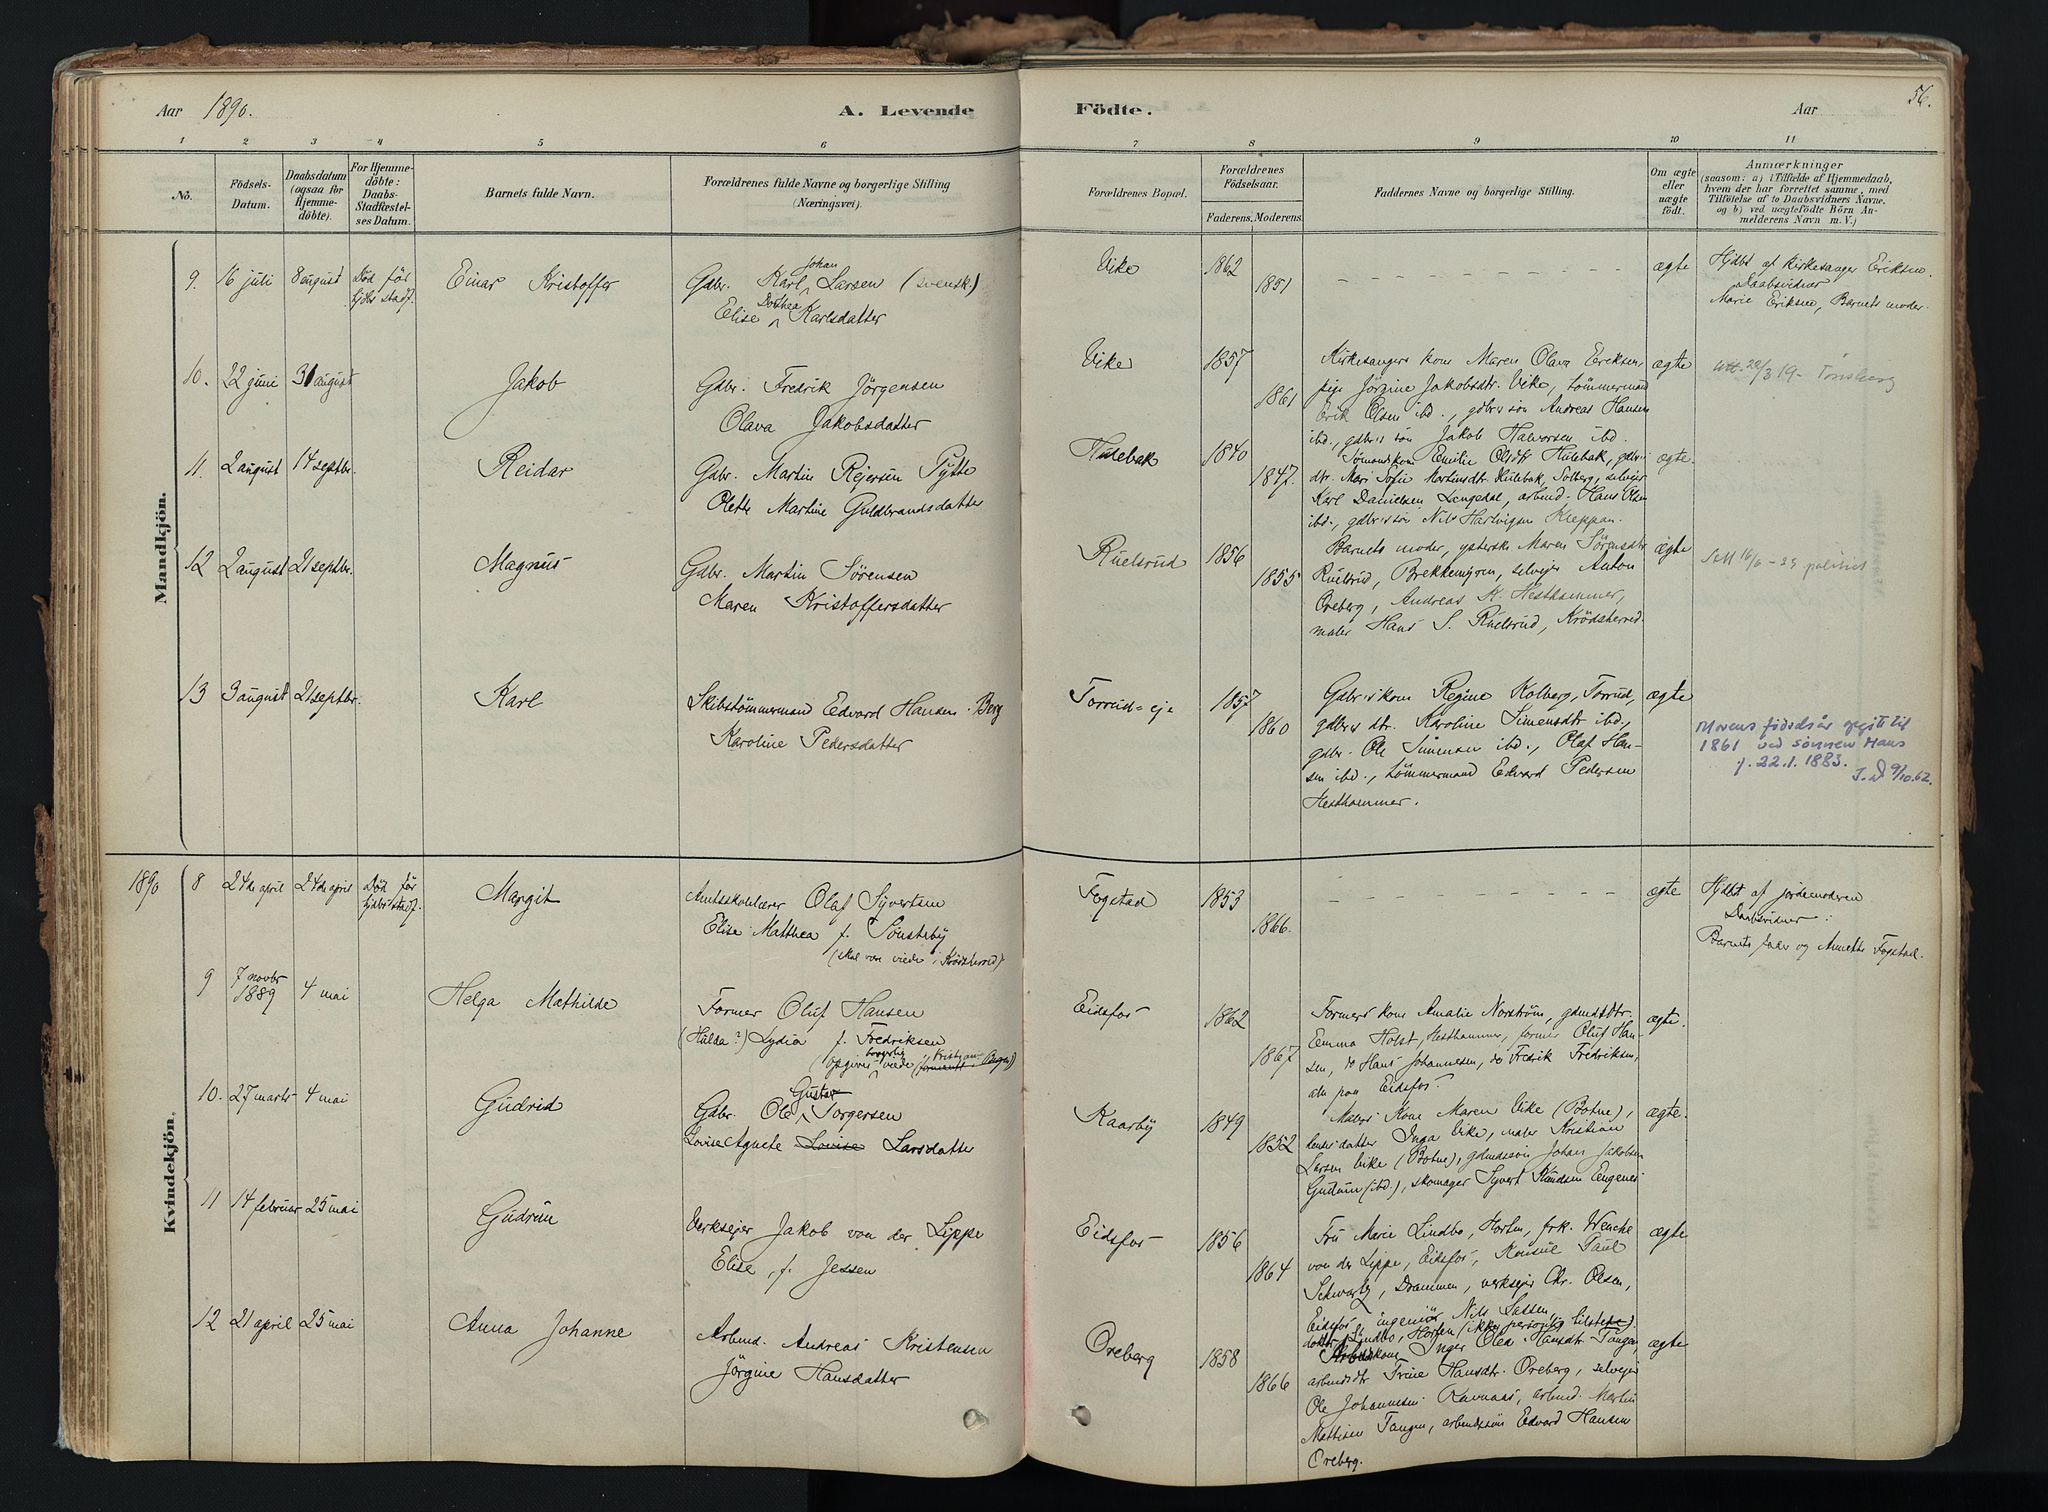 Aar 1890.
A. Levende
Födte.
Aar
56.
1 2 3 4 5 6 7 8 9 10 11
No.
Födsels-
Datum.
Daabsdatum
(ogsaa for
Hjemme-
döbte).
For Hjemme-
döbte:
Daabs-
Stadfæstel-
ses Datum.
Barnets fulde Navn.
Forældrenes fulde Navne og borgerlige Stilling
(Næringsvei).
Forældrenes Bopæl.
Forældrenes
Födselsaar.
Faderens. Moderens.
Faddernes Navne og borgerlige Stilling.
Om ægte
eller
uægte
födt.
Anmærkninger
(saasom: a) i Tilfælde af Hjemmedaab,
hvem der har forrettet samme, med
Tilföielse af to Daabsvidners Navne,
og b) ved uægtefödte Börn An-
melderens Navn m. V.)
Mandkjön.
9. 16 juli 8 august Död för
hjdbs stadf.
Einar Kristoffer
Gdbr. Karl Johan Larsen (svensk)
Elise Dorthea Karlsdatter
Vike 1862
1851
ægte
Hjdbt af kirkesanger Eriksen.
Daabsvidner
Marie Eriksen, Barnets moder.
10. 22 juni 31 august
Jakob
Gdbr. Fredrik Jörgensen
Olava Jakobsdatter
Vike 1857
1861
Kirkesangers kone Maren Olava Eriksen,
pige Jörgine Jakobsdtr. Vike, tömmermand
Erik Olsen ibd., gdbrs sön Andreas Hansen
ibd., gdbrs sön Jakob Halvorsen ibd.
ægte
Att. 22/3 19 - Tönsberg
11. 2 august 14 septbr.
Reidar
Gdbr. Martin Rejersen Tytte
Olette Martine Guldbrandsdatter
Hulebak 1840
1847.
Sömandskone Emilie Olsdtr Hulebak, gdbrs
dtr. Mari Sofie Martinsdtr. Hulebak, Solberg, selvejer
Karl Danielsen Lengedal, arbmd. Hans Olsen
ibd., gdbrs sön Nils Hartvigsen Kleppan.
ægte.
12 2 august 21 septbr.
Magnus
Gdbr. Martin Sörensen
Maren Kristoffersdatter
Ruelsrud 1856
1855
Barnets moder, ysterske Maren Sörensdtr
Ruelsrud, Brekkemyren, selvejer Anton
Oreberg, Andreas K. Hesthammer,
maler Hans S. Ruelsrud, Krödsherred.
ægte
Att 16/6 - 29 politiet
13 3 august 21 septbr.
Karl
Skibstömmermand Edvard Hansen Berg
Karoline Pedersdatter
Torrud-eje 1857
1860
Gdbrs kone Regine Kolberg, Torrud,
gdbrs dtr. Karoline Simensdtr ibd.,
gdbr. Ole Simensen ibd., Olaf Han-
sen ibd., tömmermand Edvard Pedersen
Hesthammer.
ægte
Morens födselsår opgitt til
1861 ved sønnen Hans
f. 22.1.1883.
9/10.62.
Kvindekjön.
1890 8 24de april 24de april Död för
hjdbs stadf.
Margit
Amtsskolelærer Olaf Syvertsen
Elise Matthea f. Sönsteby
(skal være viede i Krödsherred)
Fogstad 1853
1866.
ægte
Hjdbt af jordemoderen
Daabsvidner:
Barnets fader og Annette Fogstad.
9 7 novbr
1889 4 mai
Helga Mathilde
Former Oluf Hansen
(Hulda?) Lydia f. Fredriksen
(opgives borgerlig viede
Eidsfos 1862
1867
Formers kone Amalie Norström, gdmdsdtr.
Emma Holst, Hesthammer, former Oluf Han-
sen, do Hans Johannesen, do Fredrik Fredriksen,
alle paa Eidsfos.
ægte.
10. 27 marts 4 mai
Gudrid
Gdbr. Ole Gustav Torgersen
Lovise Agnete Lovise Larsdatter
Kaarby 1849
1852
Malers Kone Maren Vike (Botne),
datter Inga Vike, maler Kristian
Larsen Vike (Botne), gdmdssön Johan Jakobsen
Gutum (ibd.), skomager Syvert Knudsen Engenes
ægte.
11 14 februar 25 mai
Gudrun
Verksejer Jakob von der Lippe
Elise, f. Jessen
Eidsfos 1856
1864
Fru Marie Lindbo, Horten, frk. Wenche
von der Lippe, Eidsfos, Konsul Paul
Schwartz, Drammen, verksejer Chr. Olsen,
Eidsfos, ingeniör Nils Sassen,
doktor Lindbo, Horten (ikke personlig tilstede).
ægte
12 21 april 25 mai
Anna Johanne
Arbmd. Andreas Kristensen
Jörgine Hansdatter
Oreberg 1858
1866
Arbmdskone Inger Olea Hansdtr Tangen,
arbmdsdtr Trine Hansdtr. Oreberg, selvejer
Ole Johannesen Ravnaas, arbmd. Martin
Mattisen Tangen, arbmdssön Edvard Hansen
Oreberg.
ægte